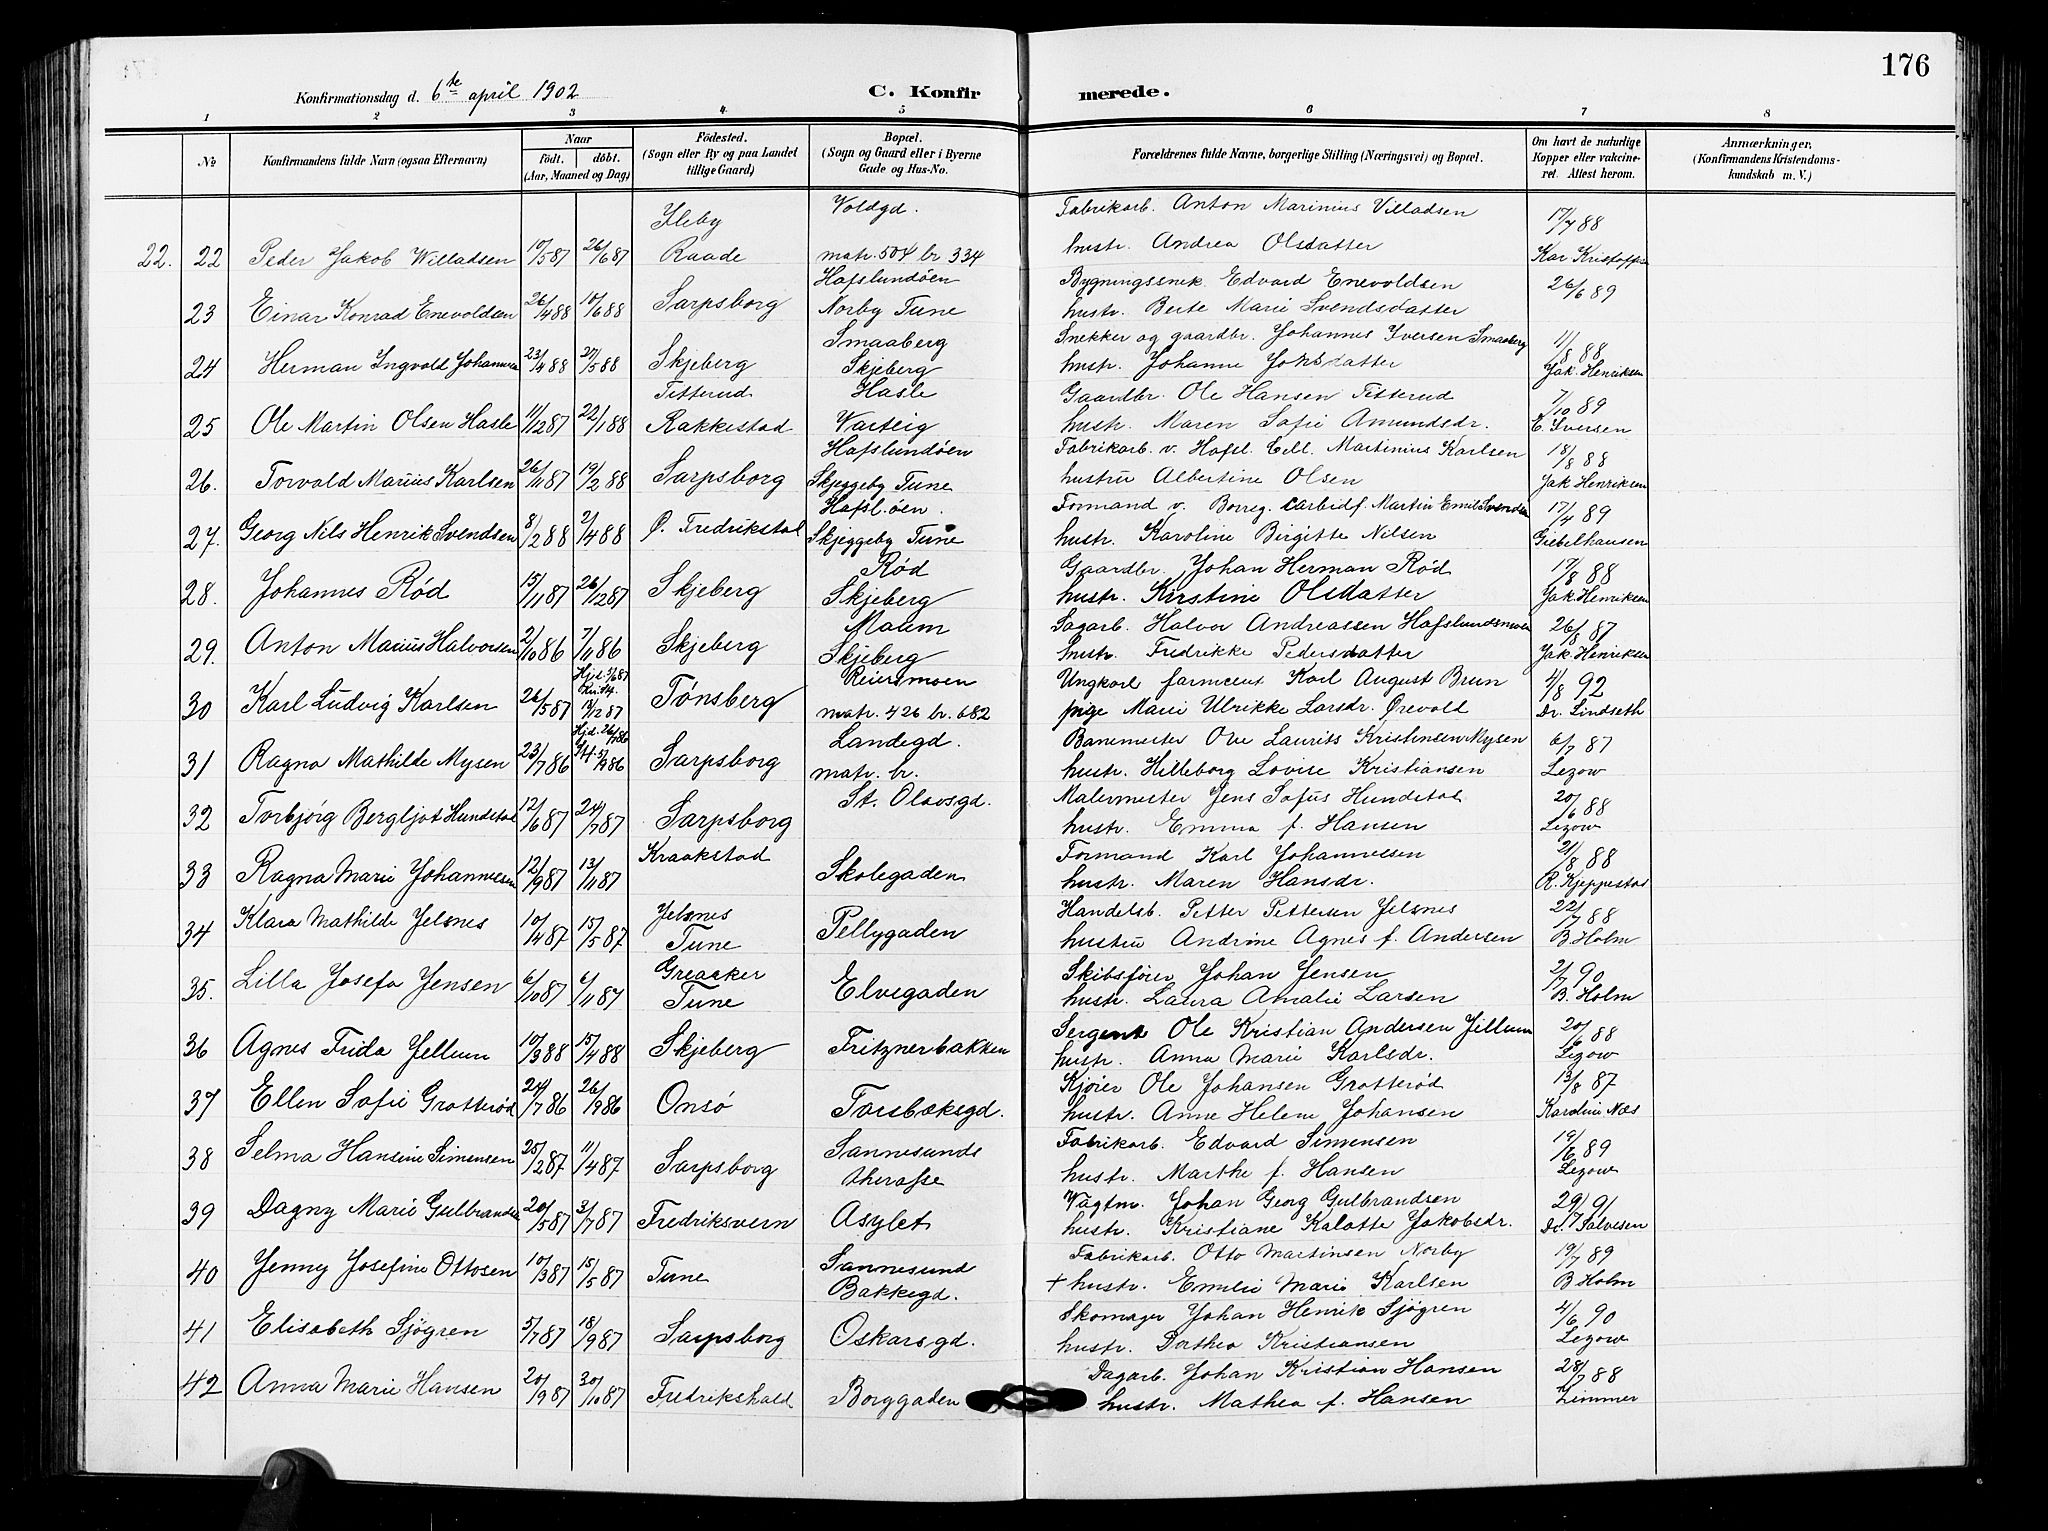 176
Konfirmationsdag d. 6te april 1902 C. Konfirmerede.
1 2 3 4 5 6 7 8
No
Konfirmandens fulde Navn (ogsaa Efternavn)
Naar
født. døbt.
(Aar, Maaned og Dag)
Fødested.
(Sogn eller By og paa Landet
tillige Gaard)
Bopæl.
(Sogn og Gaard eller i Byerne
Gade og Hus-No.
Forældrenes fulde Navne, borgerlige Stilling (Næringsvei) og Bopæl.
Om havt de naturlige
Kopper eller vakcine-
ret. Attest herom.
Anmærkninger,
(Konfirmandens Kristendoms-
kundskab m. V.)
Yleby Voldgd. Fabrikarb. Anton Marinius Villadsen 17/7 88
22. 22 Peder Jakob Willadsen 10/5 87 26/6 87 Raade matr. 504 br 334 hustr. Andrea Olsdatter Kar Kristoffersen
Hafslundöen Bygningssnek. Edvard Enevoldsen 26/6 89
23 Einar Konrad Enevoldsen 26/4 88 10/6 88 Sarpsborg Norby Tune hustr. Berte Marie Svendsdatter
Smaaberg Snekker og gaardbr. Johannes Iversen Smaaberg 11/8 88
24 Herman Ingvold Johannesen 23/4 88 27/5 88 Skjeberg Skjeberg hustr. Johanne Johsdatter Jak. Henriksen
Titterud Hasle Gaardbr. Ole Hansen Titterud 7/10 89
25 Ole Martin Olsen Hasle 11/12 87 22/1 88 Rakkestad Varteig hustr. Maren Sofie Amundsdr. E. Iversen
Hafslundöen Fabrikarb. v. Hafsl. Cell. Martinius Karlsen 18/8 88
26. Torvald Marius Karlsen 26/11 87 19/2 88 Sarpsborg Skjeggeby Tune hustru Albertine Olsen Jak Henriksen
Hafsl.öen. Formand v. Borreg. Carbidf. Martin Emil Svendsen 17/4 89
27. Georg Nils Henrik Svendsen 8/2 88 2/4 88 Ø. Fredrikstad Skjeggeby Tune hustr. Karoline Birgitte Nilsen Giebelhausen
Rød Gaardbr. Johan Herman Rød 17/8 88
28. Johannes Rød 15/11 87 26/12 87 Skjeberg Skjeberg hustr. Kirstine Olsdatter Jak. Henriksen
Maum Sagarb. Halvor Andreassen Hafslundsmoen 26/8 87
29. Anton Marius Halvorsen 2/10 86 7/11 86 Skjeberg Skjeberg hustr. Fredrikke Pedersdatter Jak. Henriksen
Reiersmoen Ungkarl farmceut Karl August Brun 4/8 92
30 Karl Ludvig Karlsen 26/5 87 13/12 87 Tønsberg matr. 426 br. 682 pige Marie Ulrikke Larsdr. Ørevold Dr. Lindseth
Hjd. 26/7 86 Landegd. Banemester Ove Laurits Kristensen Mysen 6/7 87
31 Ragna Mathilde Mysen 23/7 86 5/9 86 Sarpsborg matr. br. hustr. Hilleborg Lovise Kristiansen Lezow
St. Olavsgd. Malermester Jens Sofus Hundetal 20/6 88
32 Torbjørg Bergljot Hundetal 12/6 87 24/7 87 Sarpsborg hustr. Emma f. Hansen Lezow
Kraakstad Formand Karl Johannesen 21/8 88
33 Ragna Marie Johannesen 12/9 87 13/11 87 Skolegaden hustr. Maren Hansdr. R. Kjeppestad
Jelsnes Handelsb. Petter Pettersen Jelsnes 22/7 88
34 Klara Mathilde Jelsnes 10/4 87 15/5 87 Tune Pellygaden hustru Andrine Agnes f. Andersen B. Holm
Greaaker Skibsfører Johan Jensen 2/7 90
35. Lilla Josefa Jensen 6/10 87 6/11 87 Tune Elvegaden hustr. Laura Amalie Larsen B. Holm
Sergent Ole Kristian Andersen Jillum 20/6 88
36 Agnes Frida Jellum 10/3 88 15/4 88 Skjeberg Fritznerbakken hustr. Anna Marie Karlsdr. Lezow
Kjører Ole Johansen Grotterød 13/8 87
37 Ellen Sofie Grotterød 24/7 86 26/9 86 Onsø Torsbæksgd. hustr. Anne Helene Johansen Karoline Næs
Sannesunds Fabrikarb. Edvard Simensen 19/6 89
38 Selma Hansine Simensen 25/2 87 11/4 87 Sarpsborg therasse hustr. Marthe f. Hansen Lezow
Vagtm. Johan Georg Gulbrandsen 29/7 91
39 Dagny Marie Gulbrandsen 20/5 87 3/7 87 Fredriksvern Asylet hustr. Kristiane Kalotte Jakobsdr. Dr. Salvesen
Sannesund Fabrikarb. Otto Martinsen Norby 19/7 89
40 Jenny Josefine Ottosen 10/3 87 15/5 87 Tune Bakkegd. + hustr. Emilie Marie Karlsen B. Holm
Skomager Johan Henrik Sjøgren 4/6 90
41 Elisabeth Sjøgren 5/7 87 18/9 87 Sarpsborg Oskarsgd. hustr. Dorthea Kristiansen Lezow
Dagarb. Johan Kristian Hansen 28/7 88
42 Anna Marie Hansen 20/9 87 30/10 87 Fredrikshald Borggaden hustr. Mathea f. Hansen Limmer